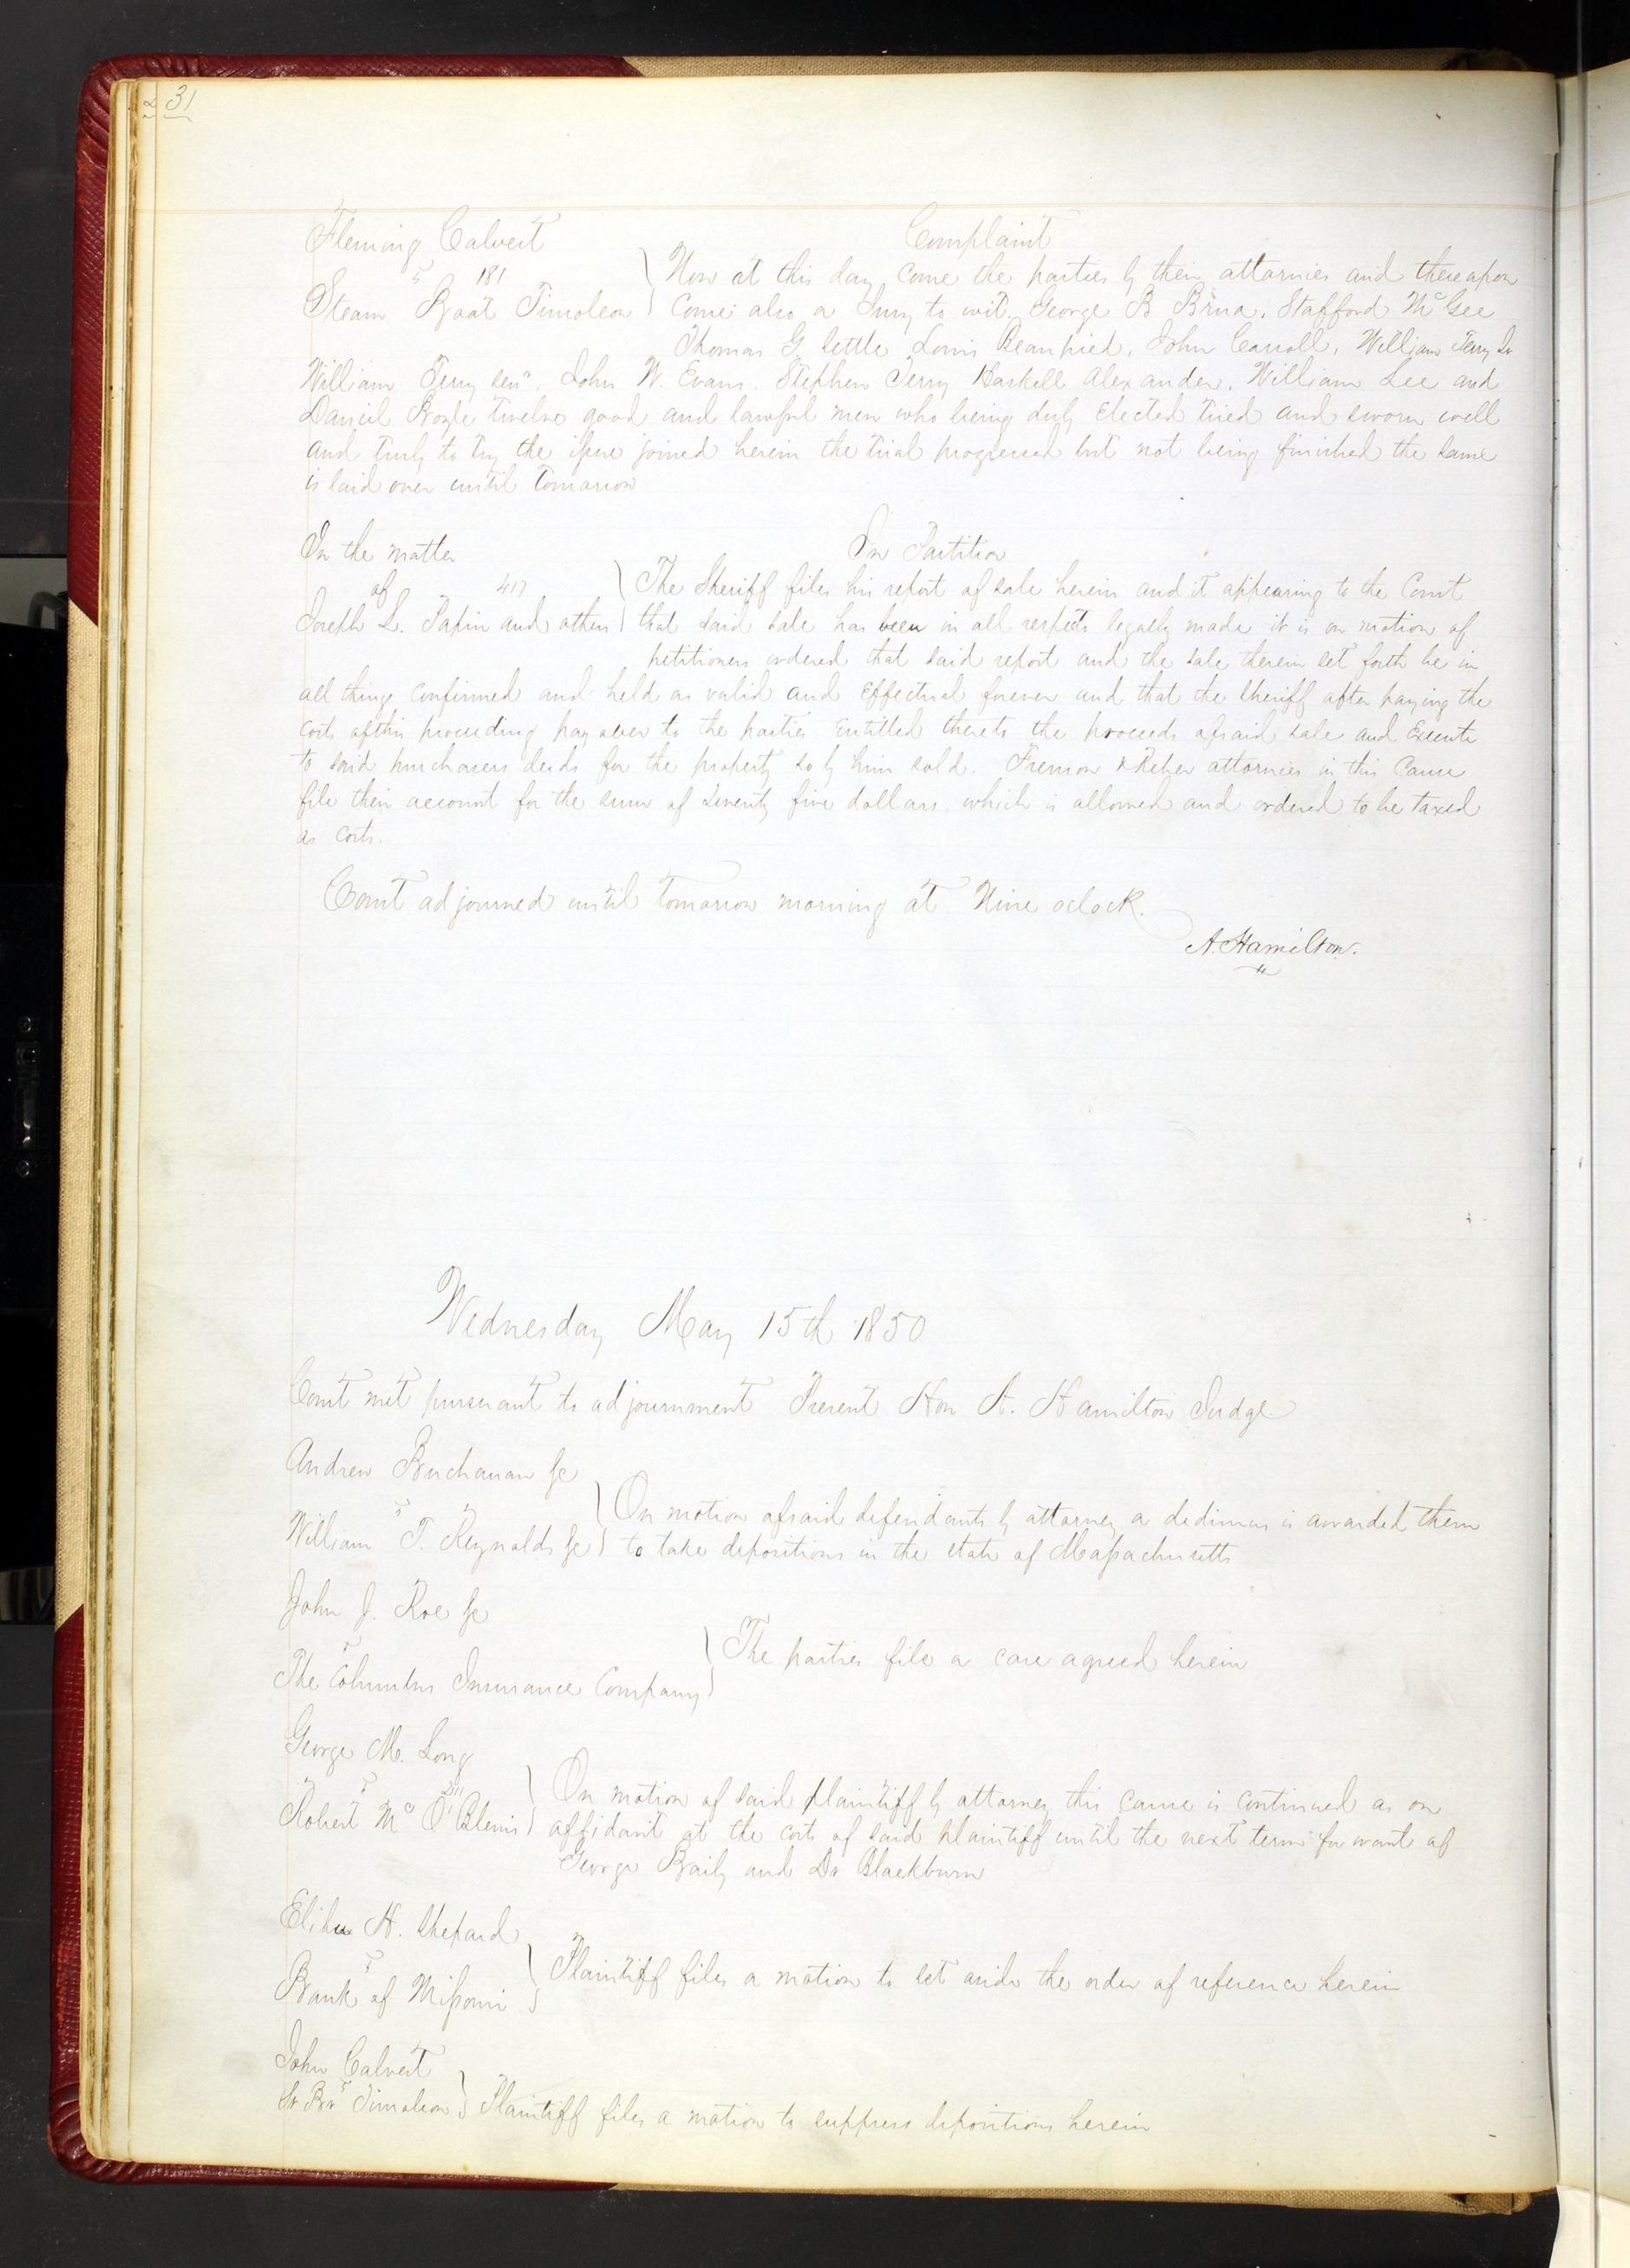 231
Fleming Calvert Complaint
vs 181 Now at this day come the parties by their attornies and thereupon
Steam Boat Timoleon come also a Jury to wit, George B Brua, Stafford McGee
Thomas G Settle Louis Beaupied, John Carroll, William Terry Jr
William Terry senr, John W. Evans. Stephen Terry Haskell Alexander, William Lee and
Daniel Boyle twelve good and lawful men who being duly elected tried and sworn well
and truly to try the issue joined herein the trial progressed but not being finished the same
is laid over until tomorrow
In the matter In Partition
of 417 The Sheriff files his report of sale herein and it appearing to the Court
Joseph L. Papin and others that said sale has been in all respects legally made it is on motion of
petitioners ordered that said report and the sale therein set forth be in
all things confirmed and held as valid and effectual forever and that the Sheriff after paying the
costs of this proceeding pay over to the parties entitled thereto the proceeds of said sale and Execute
to said purchasers deeds for the property so by him sold. Fremon & Reber attornies in this cause
file their account for the sum of twenty five dollars which is allowed and ordered to be taxed
as costs.
Court adjourned until tomorrow morning at Nine oclock.
A. Hamilton.
Wednesday May 15th 1850
Court met pursuant to adjournment Present Hon A. Hamilton Judge
Andrew Buchanan &c
vs On motion of said defendants by attorney a dedimus is awarded them
William T. Reynolds &c to take depositions in the state of Massachusetts
John J. Roe &c
vs The parties file a case agreed herein
The Columbus Insurance Company
George M. Long
vs On motion of said plaintiff by attorney this cause is continued as on
Robert Mc O'Blenis affidavit at the costs of said plaintiff until the next term for want of
George Baily and Dr Blackburn
Elihu H. Shepard
vs Plaintiff files a motion to set aside the order of reference herein
Bank of Missouri
John Calvert
vs
St Bt Timoleon Plaintiff files a motion to suppress depositions herein